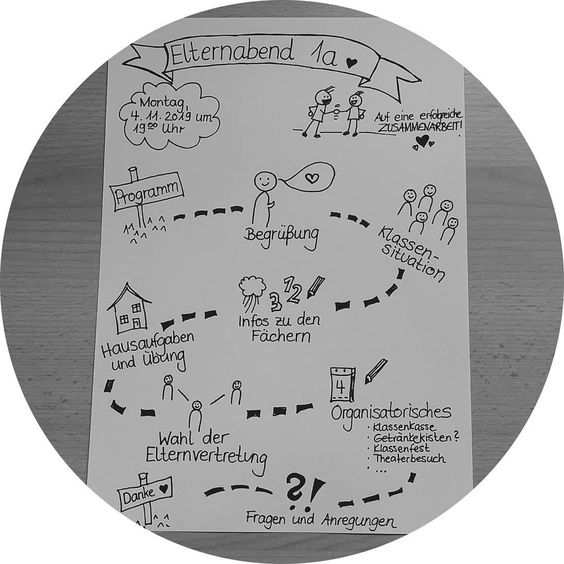 Elternabend 1a
Montag,
4. 11. 2019, um
19⁰⁰ Uhr
Auf eine erfolgreiche
ZUSAMMENARBEIT!
Programm
Begrüßung
Klassen-
situation
123
Infos zu den
Fächern
Hausaufgaben
und Übung
Wahl der
Elternvertretung
4
Organisatorisches
· Klassenkasse
· Getränkekisten?
· Klassenfest
· Theaterbesuch
· ...
Danke
?!
Fragen und Anregungen